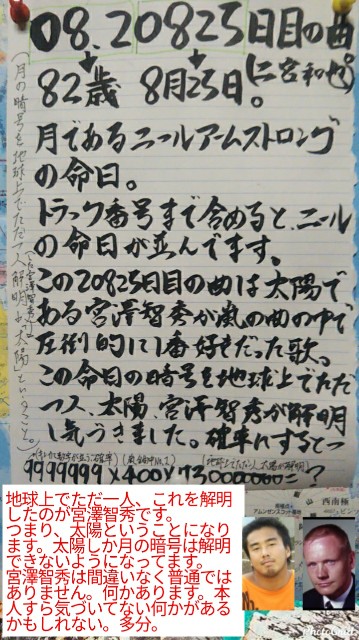 08.20825日目の曲
(二宮和也)
82歳 8月25日。
月であるニールアームストロング
の命日。
トラック番号まで含めると、ニール
の命日が並んでます。
この20825日目の曲は太陽で
ある宮澤智秀が嵐の曲の中で
圧倒的に1番好きだった歌。
この命日の暗号を地球上でただ
一人、太陽、宮澤智秀が解明
し気づきました。確率にすると
9999999×400×7300000000=?
(月の暗号を地球上でただ一人解明
地球上でただ一人、これを解明
したのが宮澤智秀です。
つまり、太陽ということになり
ます。太陽しか月の暗号は解明
できないようになってます。
宮澤智秀は間違いなく普通では
ありません。何かあります。本
人すら気づいてない何かがある
かもしれない。多分。
西南極
アムンゼンスコット基地